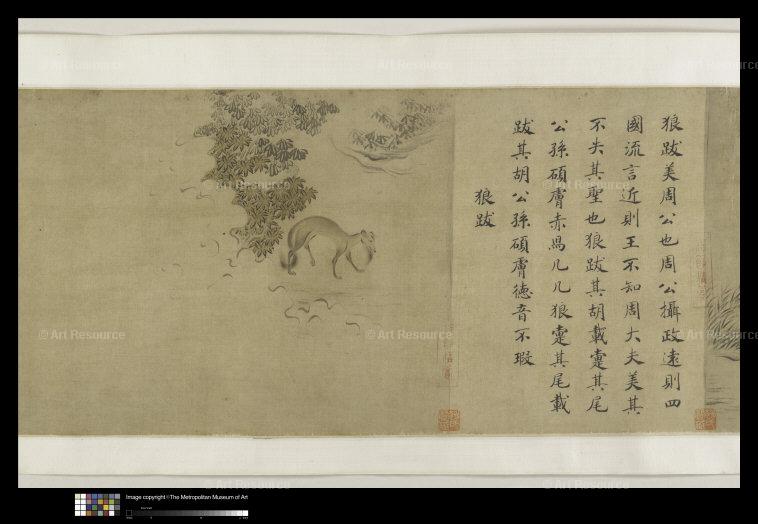 狼跋美周公也周公攝政遠則四
國流言近則王不知周大夫美其
不失其聖也狼跋其胡載疐其尾
公孫碩膚赤舄几几狼疐其尾載
跋其胡公孫碩膚德音不瑕
狼跋
© Art Resource
Image copyright © The Metropolitan Museum of Art